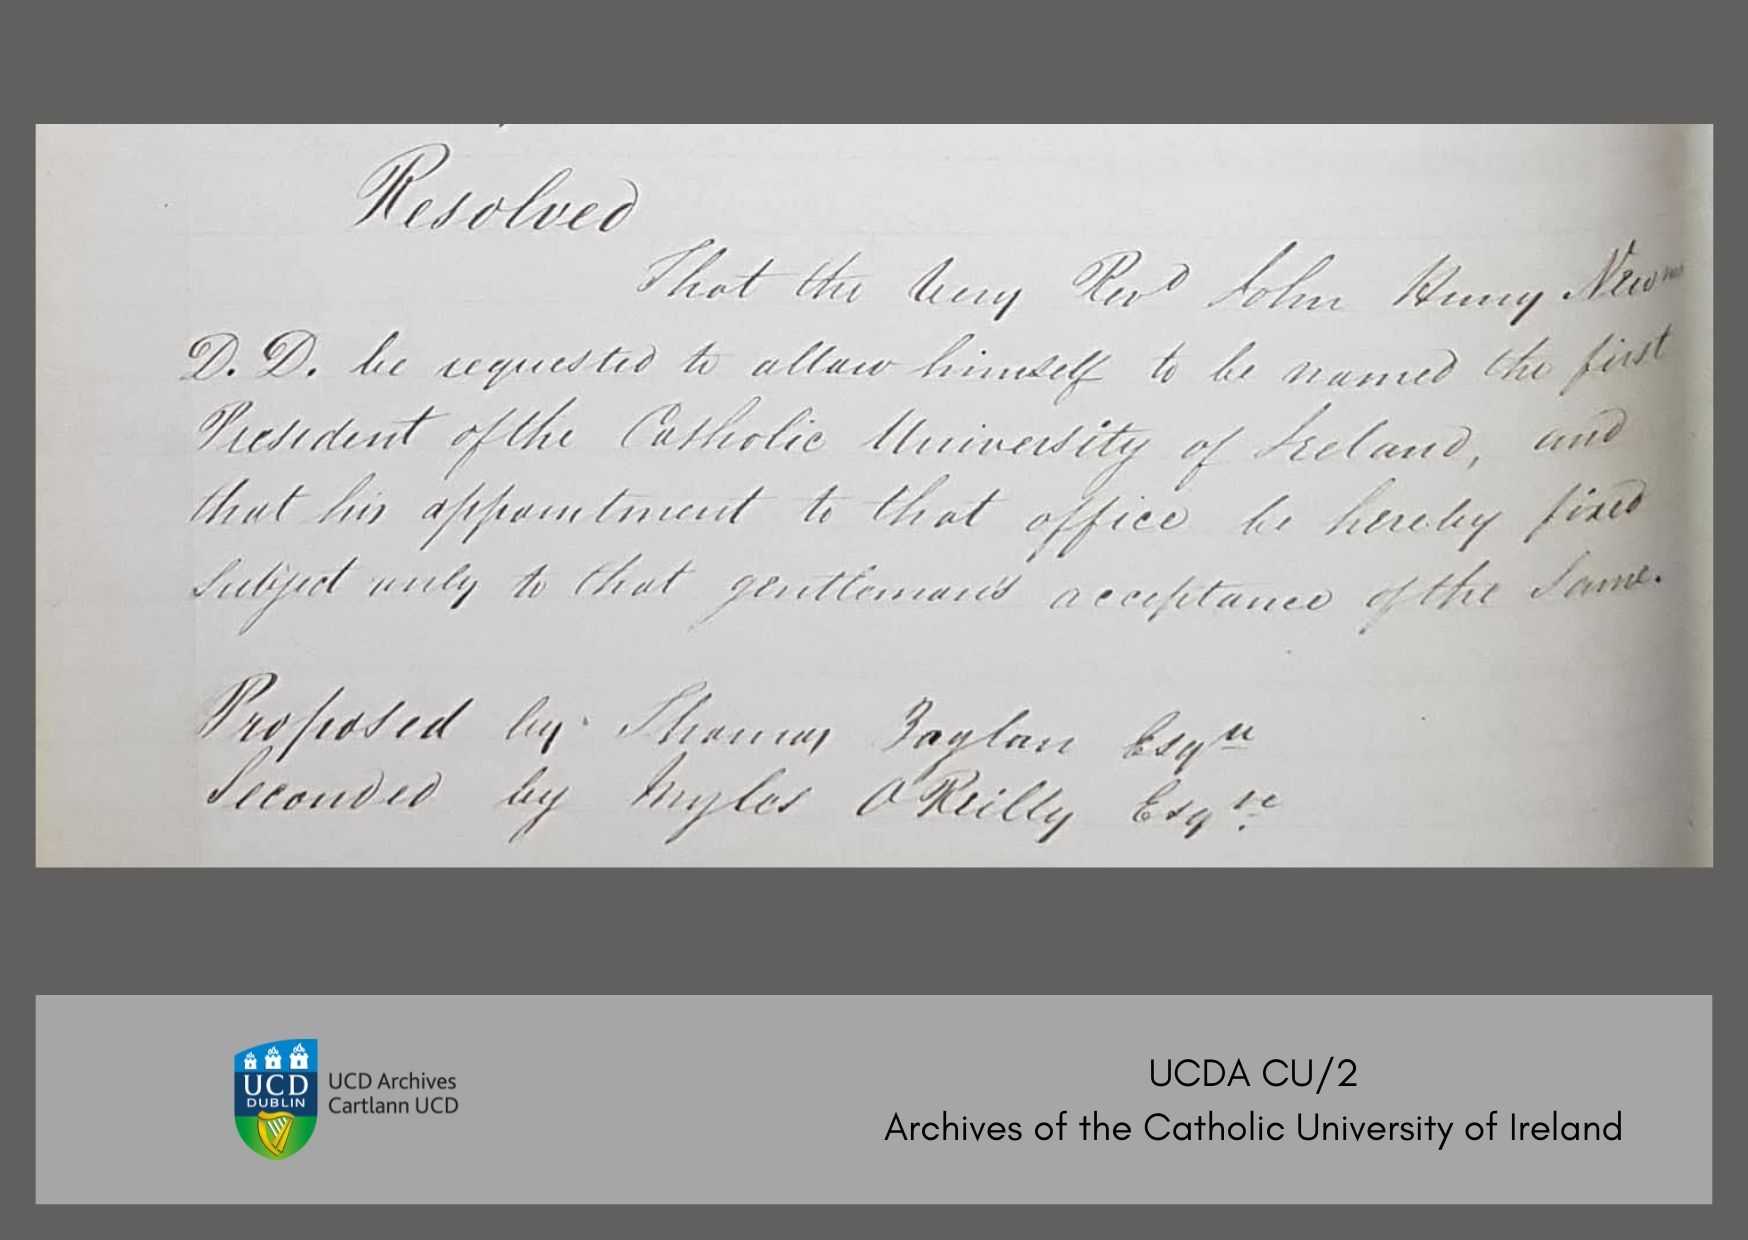 Resolved
That the Very Revd John Henry Newman
D. D. be requested to allow himself to be named the first
President of the Catholic University of Ireland, and
that his appointment to that office be hereby fixed
subject only to that gentleman's acceptance of the same.
Proposed by Thomas Esqre
Seconded by Myles O'Reilly Esqre
UCD
DUBLIN
UCD Archives
Cartlann UCD
UCDA CU/2
Archives of the Catholic University of Ireland